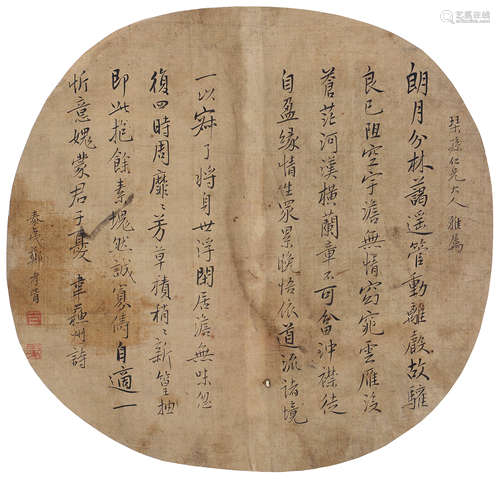 琹孫仁兄大人 雅屬
朗月分林藹遥管動離聲故驩
良已阻空宇澹無情窈窕雲雁没
蒼茫河漢橫蘭章不可畣沖襟徒
自盈緣情生眾累晚悟依道流諸境
一以寂了將身世浮閒居澹無味忽
復四時周靡〻芳草積稍〻新篁抽
即此抱餘素塊然誠寡儔自適一
忻意媿蒙君子憂 韋蘇州詩
泰夷鄭孝胥